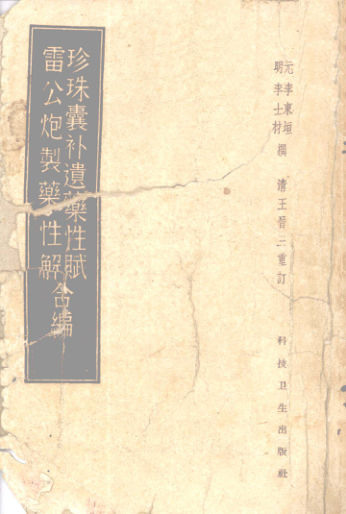 元李東垣
明李士材
撰 清王晋三重訂
珍珠囊补遺藥性賦
雷公炮製藥性解
合編
科技卫生出版社